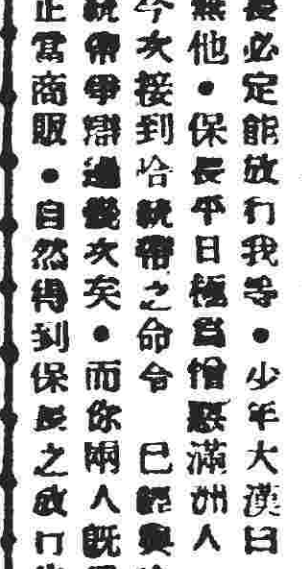 長必定能放行我等●少年大漢曰
無他●保長平日極為憎惡滿洲人
今次接到哈統帶之命令 已經與
統帶串辯過幾次矣●而你兩人既
正當商販●自然得到保長之放行